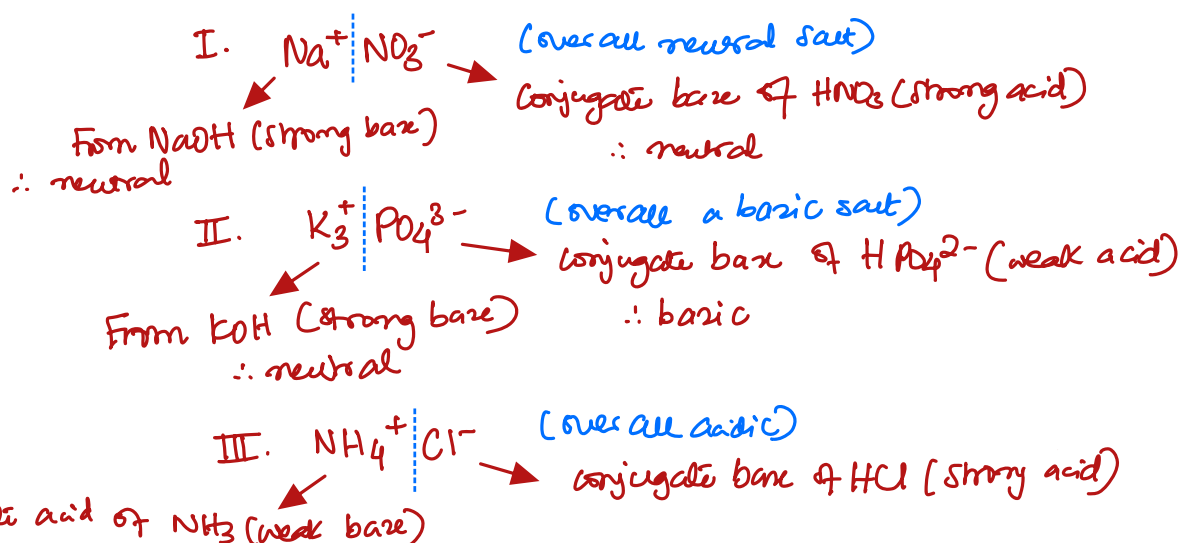 I. Na⁺ NO₃⁻ (overall neutral salt)
conjugate base of HNO₃ (strong acid)
From NaOH (strong base)
∴ neutral
∴ neutral
II. K₃⁺ PO₄³⁻ (overall a basic salt)
conjugate base of HPO₄²⁻ (weak acid)
From KOH (strong base)
∴ basic
∴ neutral
III. NH₄⁺ Cl⁻ (overall acidic)
conjugate base of HCl (strong acid)
acid of NH₃ (weak base)